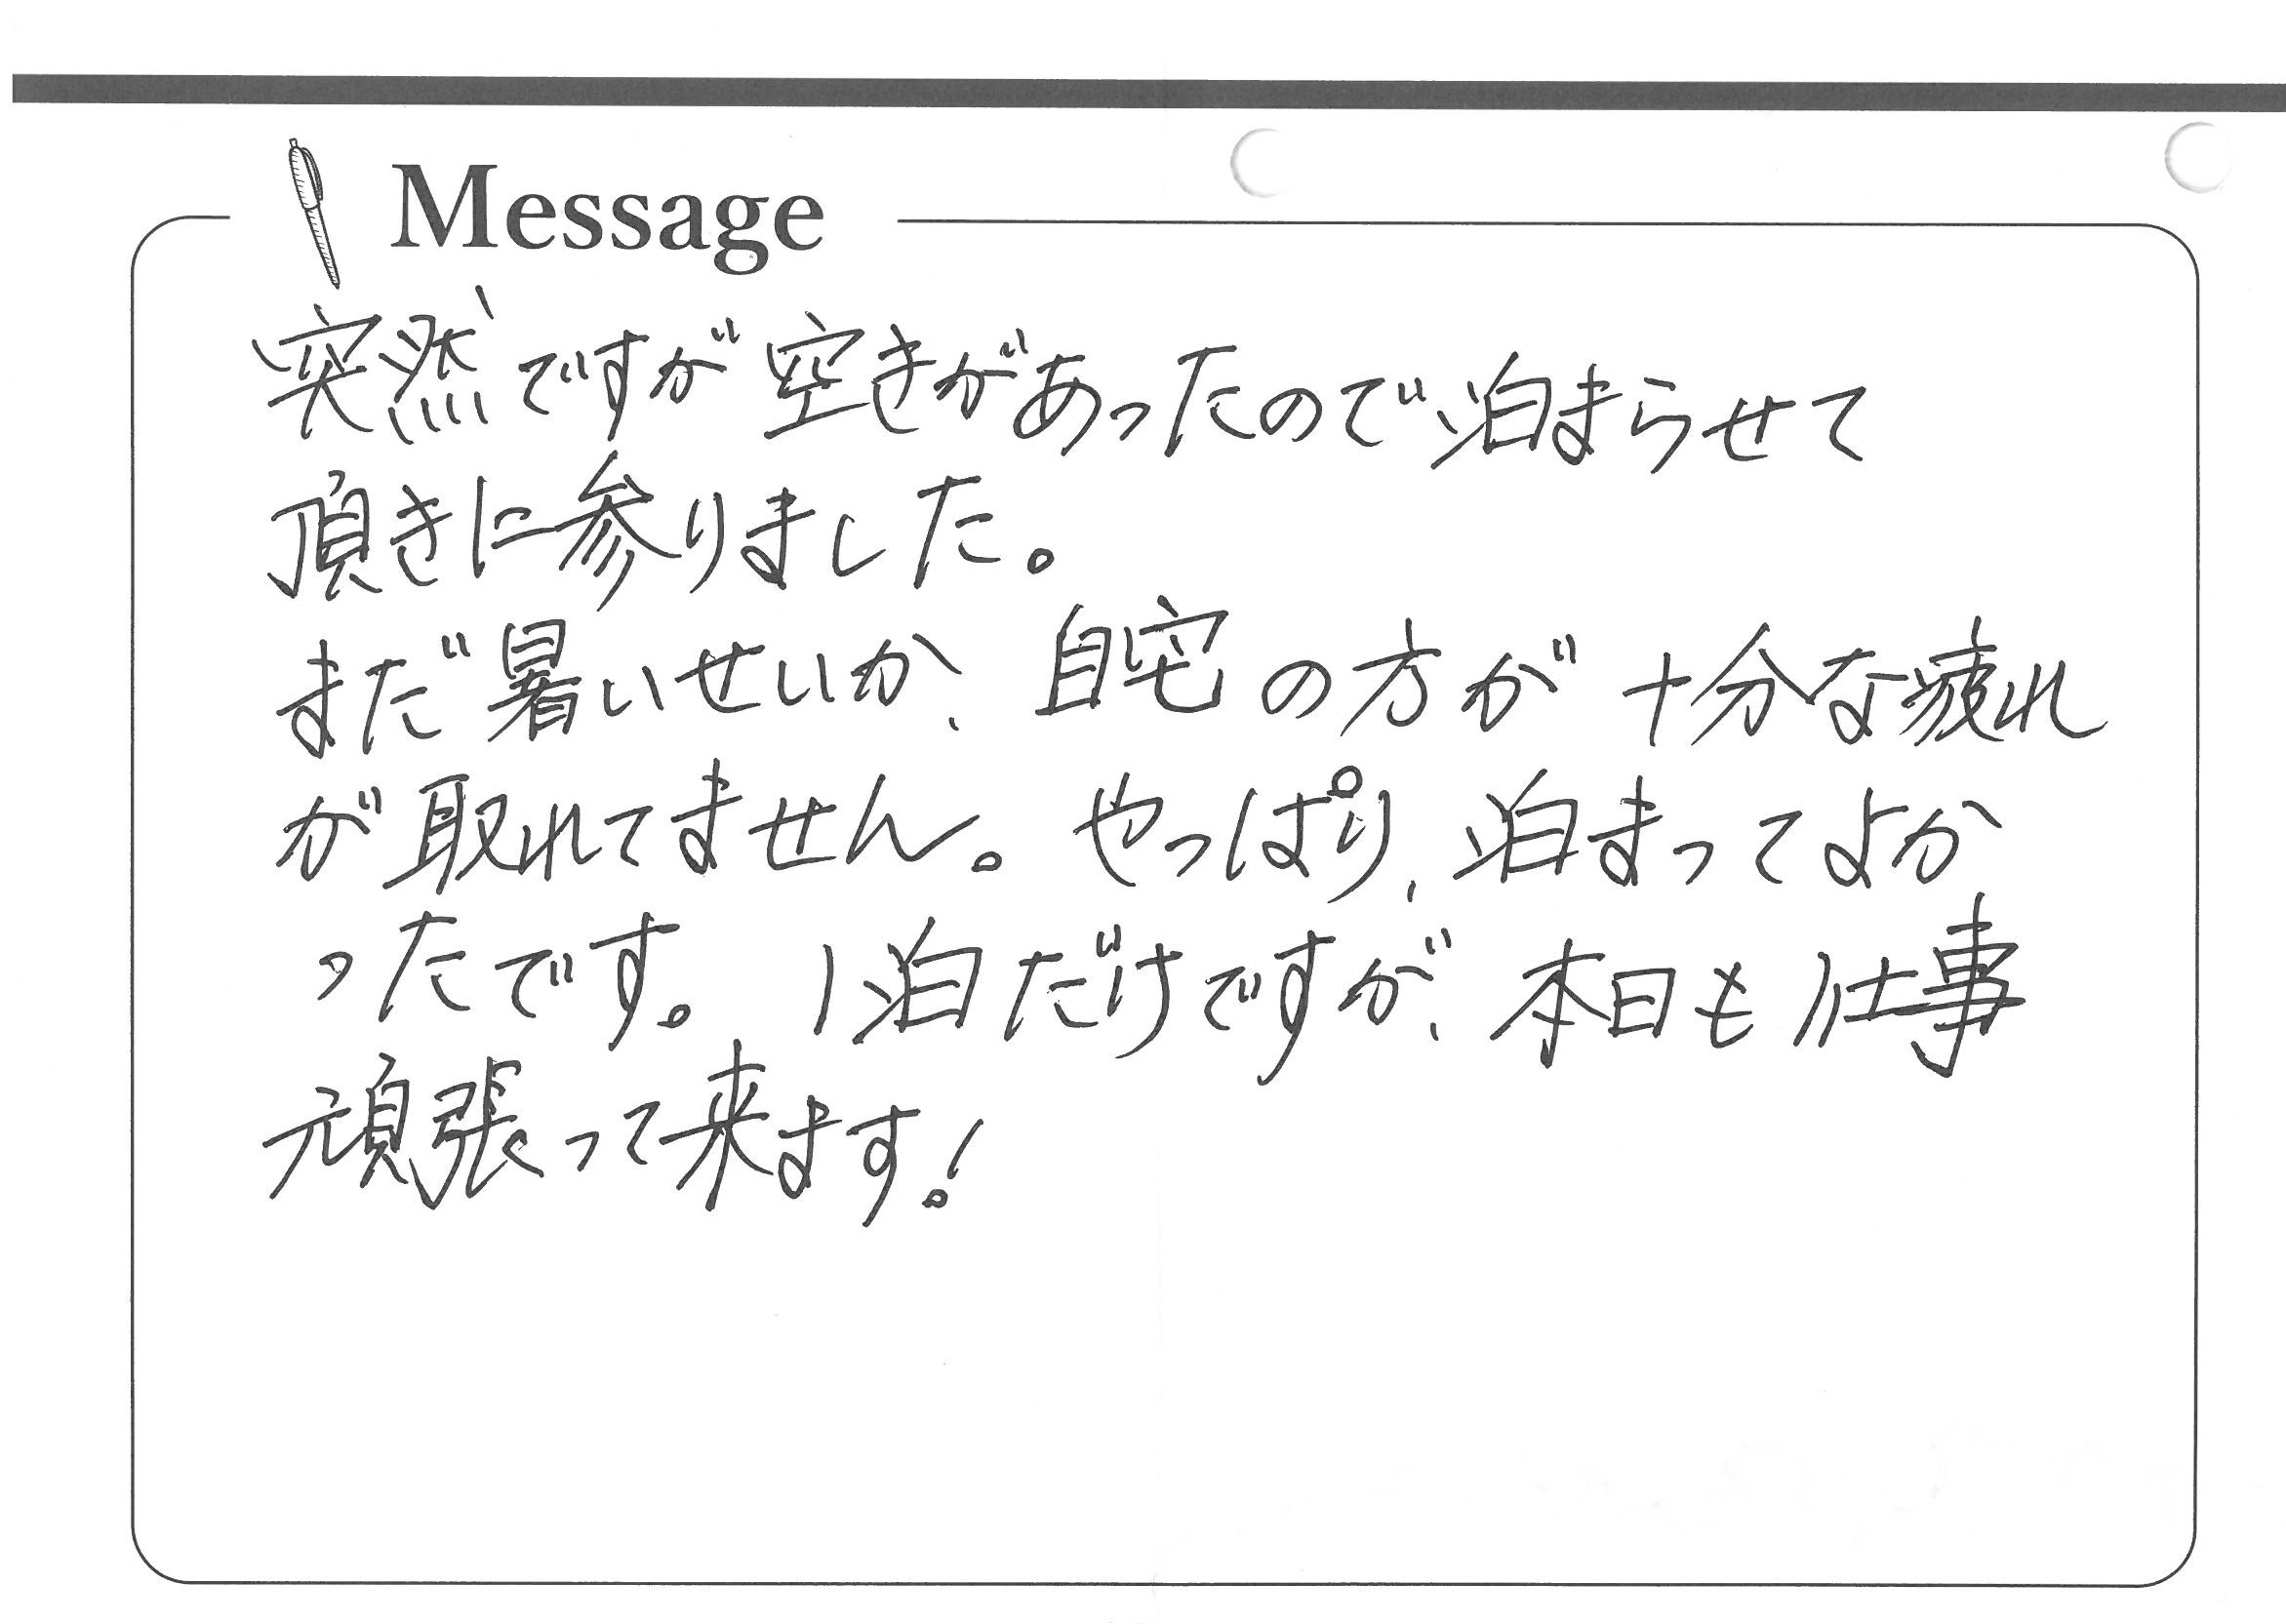 Message
突然ですが空きがあったので泊まらせて
頂きに参りました。
まだ暑いせいか、自宅の方が十分な疲れ
が取れてません。やっぱり、泊まってよか
ったです。1泊だけですが、本日も仕事
頑張って来ます!